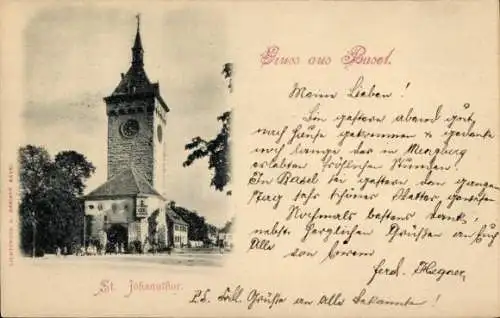 Gruss aus Basel.
Meine Lieben!
Bin gestern abend gut
nach Hause gekommen & gedenke
noch lange der in
erlebten fröhlichen Stunden.
In Basel ist gestern den ganzen
Tag sehr schönes Wetter gewesen
Nochmals bestens Dank,
nebst herzlichen Grüssen an Euch
Alle von Eurem
Ferd.
St. Johannthor.
P.S. Grüsse an Alle Bekannte!